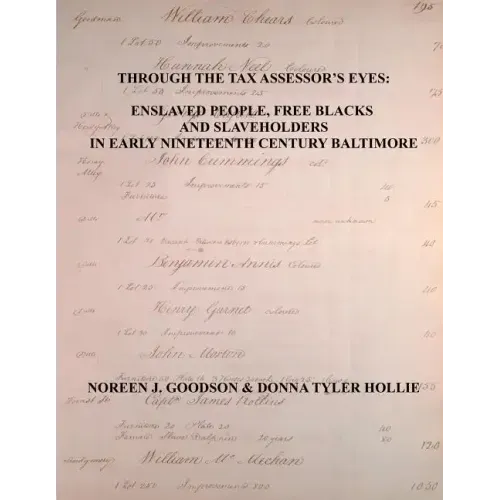 195
Goodman William Chears Coloured
1 Lot 50 Improvements 20
Hannah Neel Coloured
1 Lot 58 Improvements 25
THROUGH THE TAX ASSESSOR'S EYES:
ENSLAVED PEOPLE, FREE BLACKS
AND SLAVEHOLDERS
IN EARLY NINETEENTH CENTURY BALTIMORE
300
John Cummings
1 Lot 25 Improvements 15
Furniture
45
Mr name unknown
40
Benjamin Annis Coloured
1 Lot 20 Improvements
Henry Garnet Coloured
1 Lot 30 Improvement
John Morton
NOREEN J. GOODSON & DONNA TYLER HOLLIE
Captn James
Furniture 20 Plate 20
20 years
120
Montgomery William Mc Mechan
1 Lot 250 Improvements 800
1050